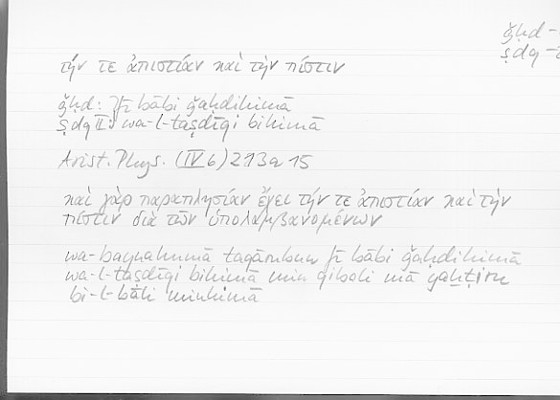 ǧḥd -
ṣdq -
τήν τε ἀπιστίαν καὶ τὴν πίστιν
ǧḥd: fī bābi ǧaḥdihimā
ṣdq II: wa-l-taṣdīqi bihimā
Arist. Phys. (IV 6) 213a 15
καὶ γὰρ παραπλησίαν ἔχει τήν τε ἀπιστίαν καὶ τὴν
πίστιν διὰ τῶν ὑπολαμβανομένων
wa-baynahumā taqārubun fī bābi ǧaḥdihimā
wa-l-taṣdīqi bihimā min qibali mā yaḫṭiru
bi-l-bāli minhimā